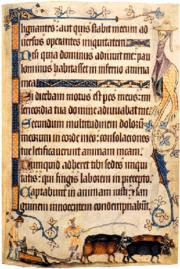 lignantes: aut quis stabit mecum ad
uersus operantes iniquitatem
Nisi quia dominus adiuuit me: pau
lominus habitasset in inferno anima
mea
Si dicebam motus est pes meus: mi
sericordia tua domine adiuuabat me
Secundum multitudinem doloru
meorum in corde meo: consolationes
tue letificauerunt animam meam
Numquid adheret tibi sedes iniqui
tatis: qui fingis laborem in precepto
Captabunt in animam iusti: et san
guinem innocentem condempnabunt